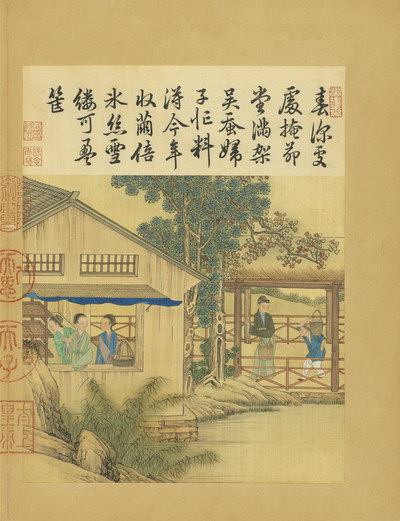 春深處
處掩茆
堂滿架
吳蠶婦
子忙料
得今年
收繭倍
冰絲雪
縷可盈
筐